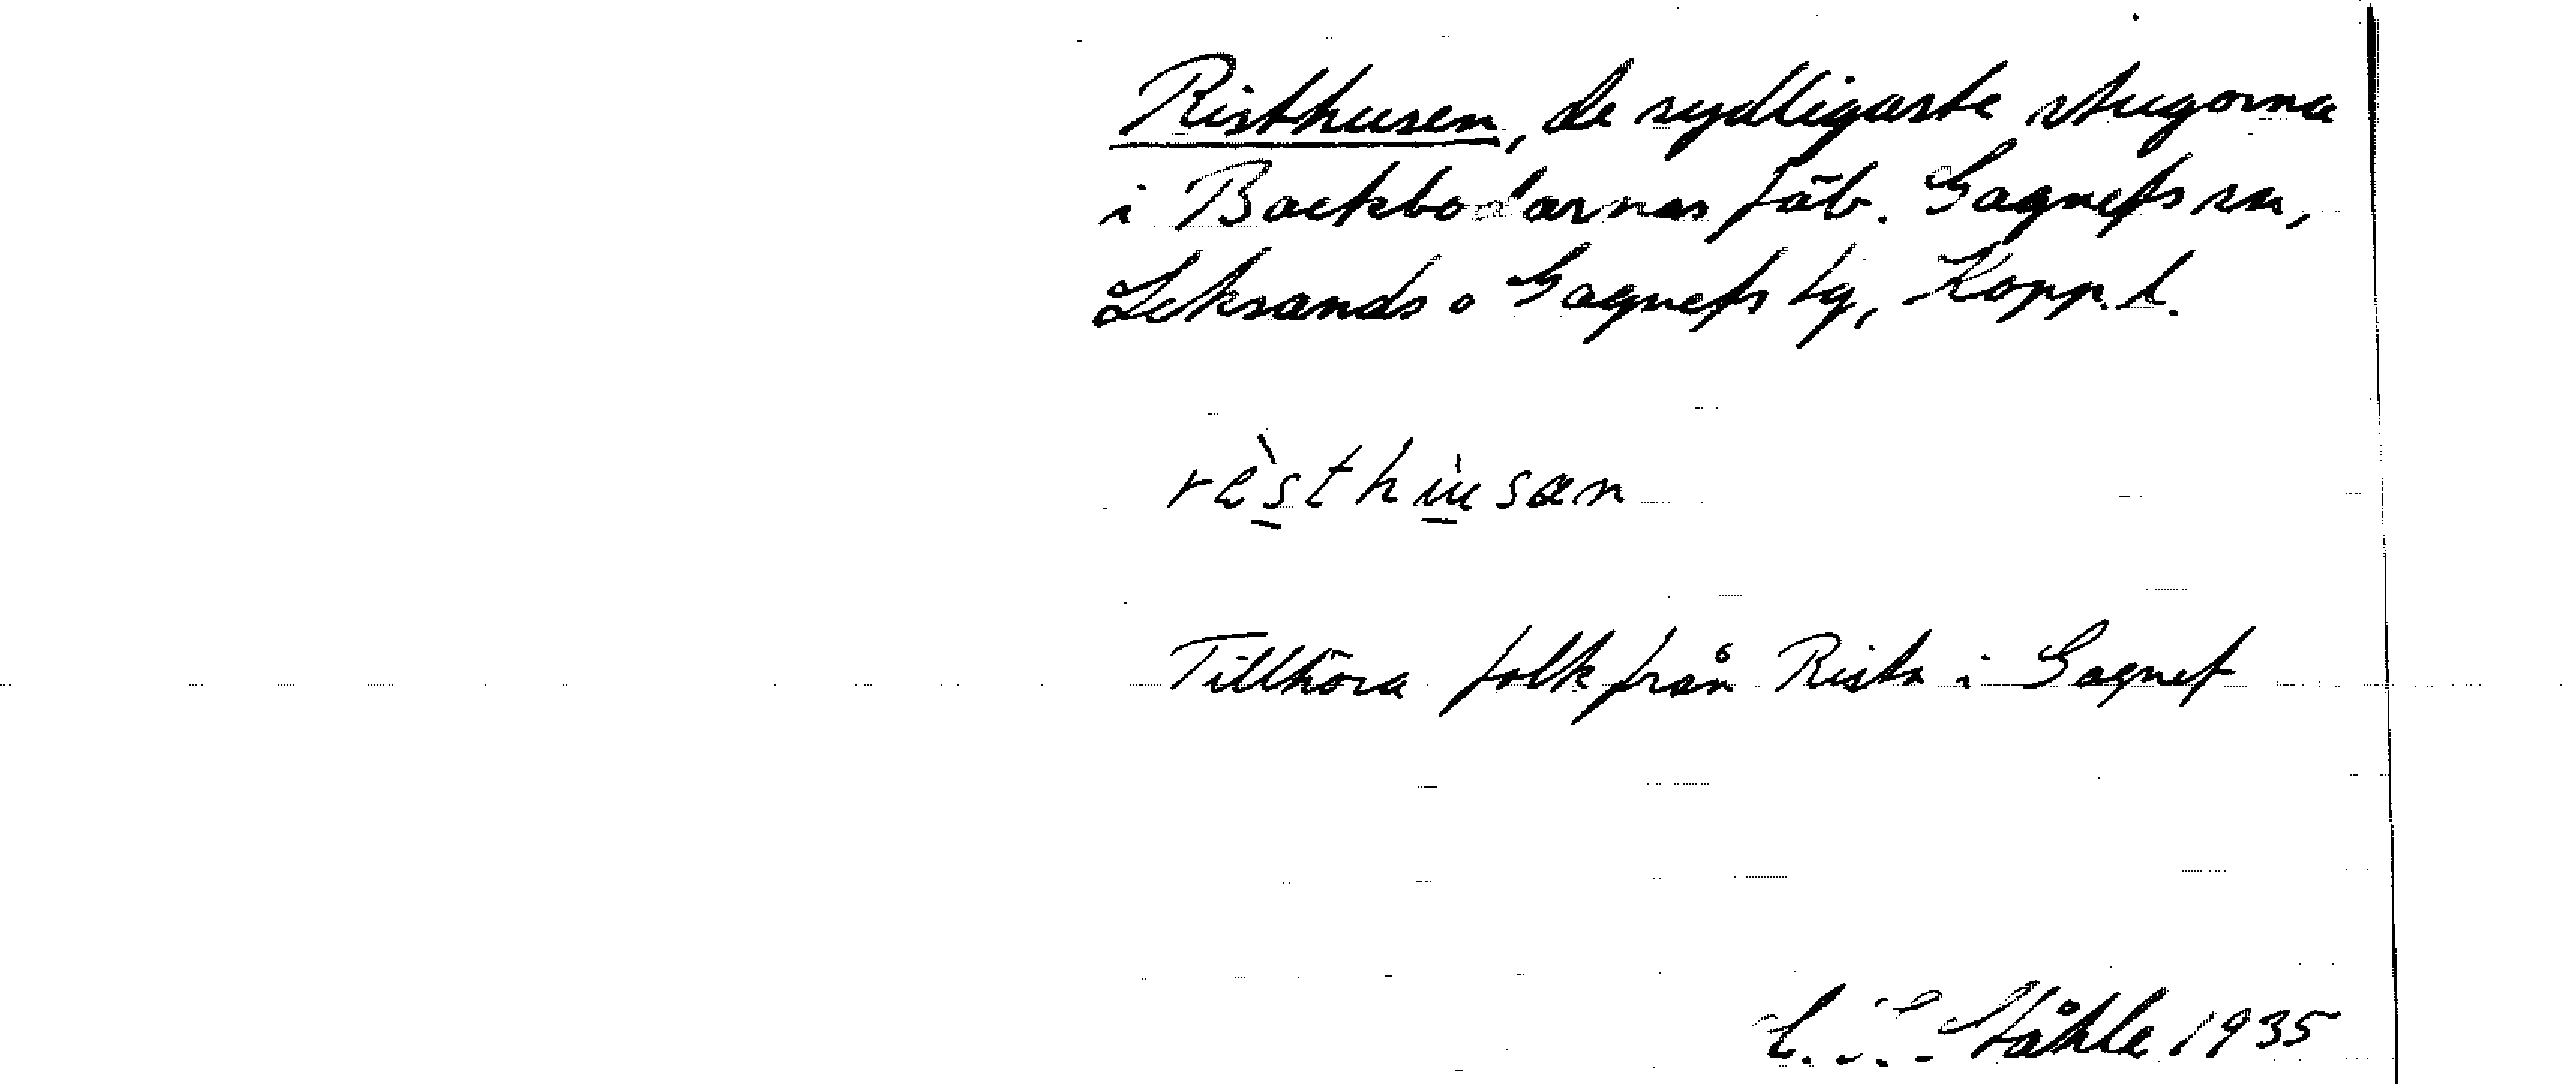 Risthusen, de sydligaste stugorna
i Backbodarnas fäb. Gagnefs sn,
Leksands o Gagnefs tg, Kopp. l.
rèsthùsæn
Tillhöra folk från Rista i Gagnef
C. I. Ståhle 1935